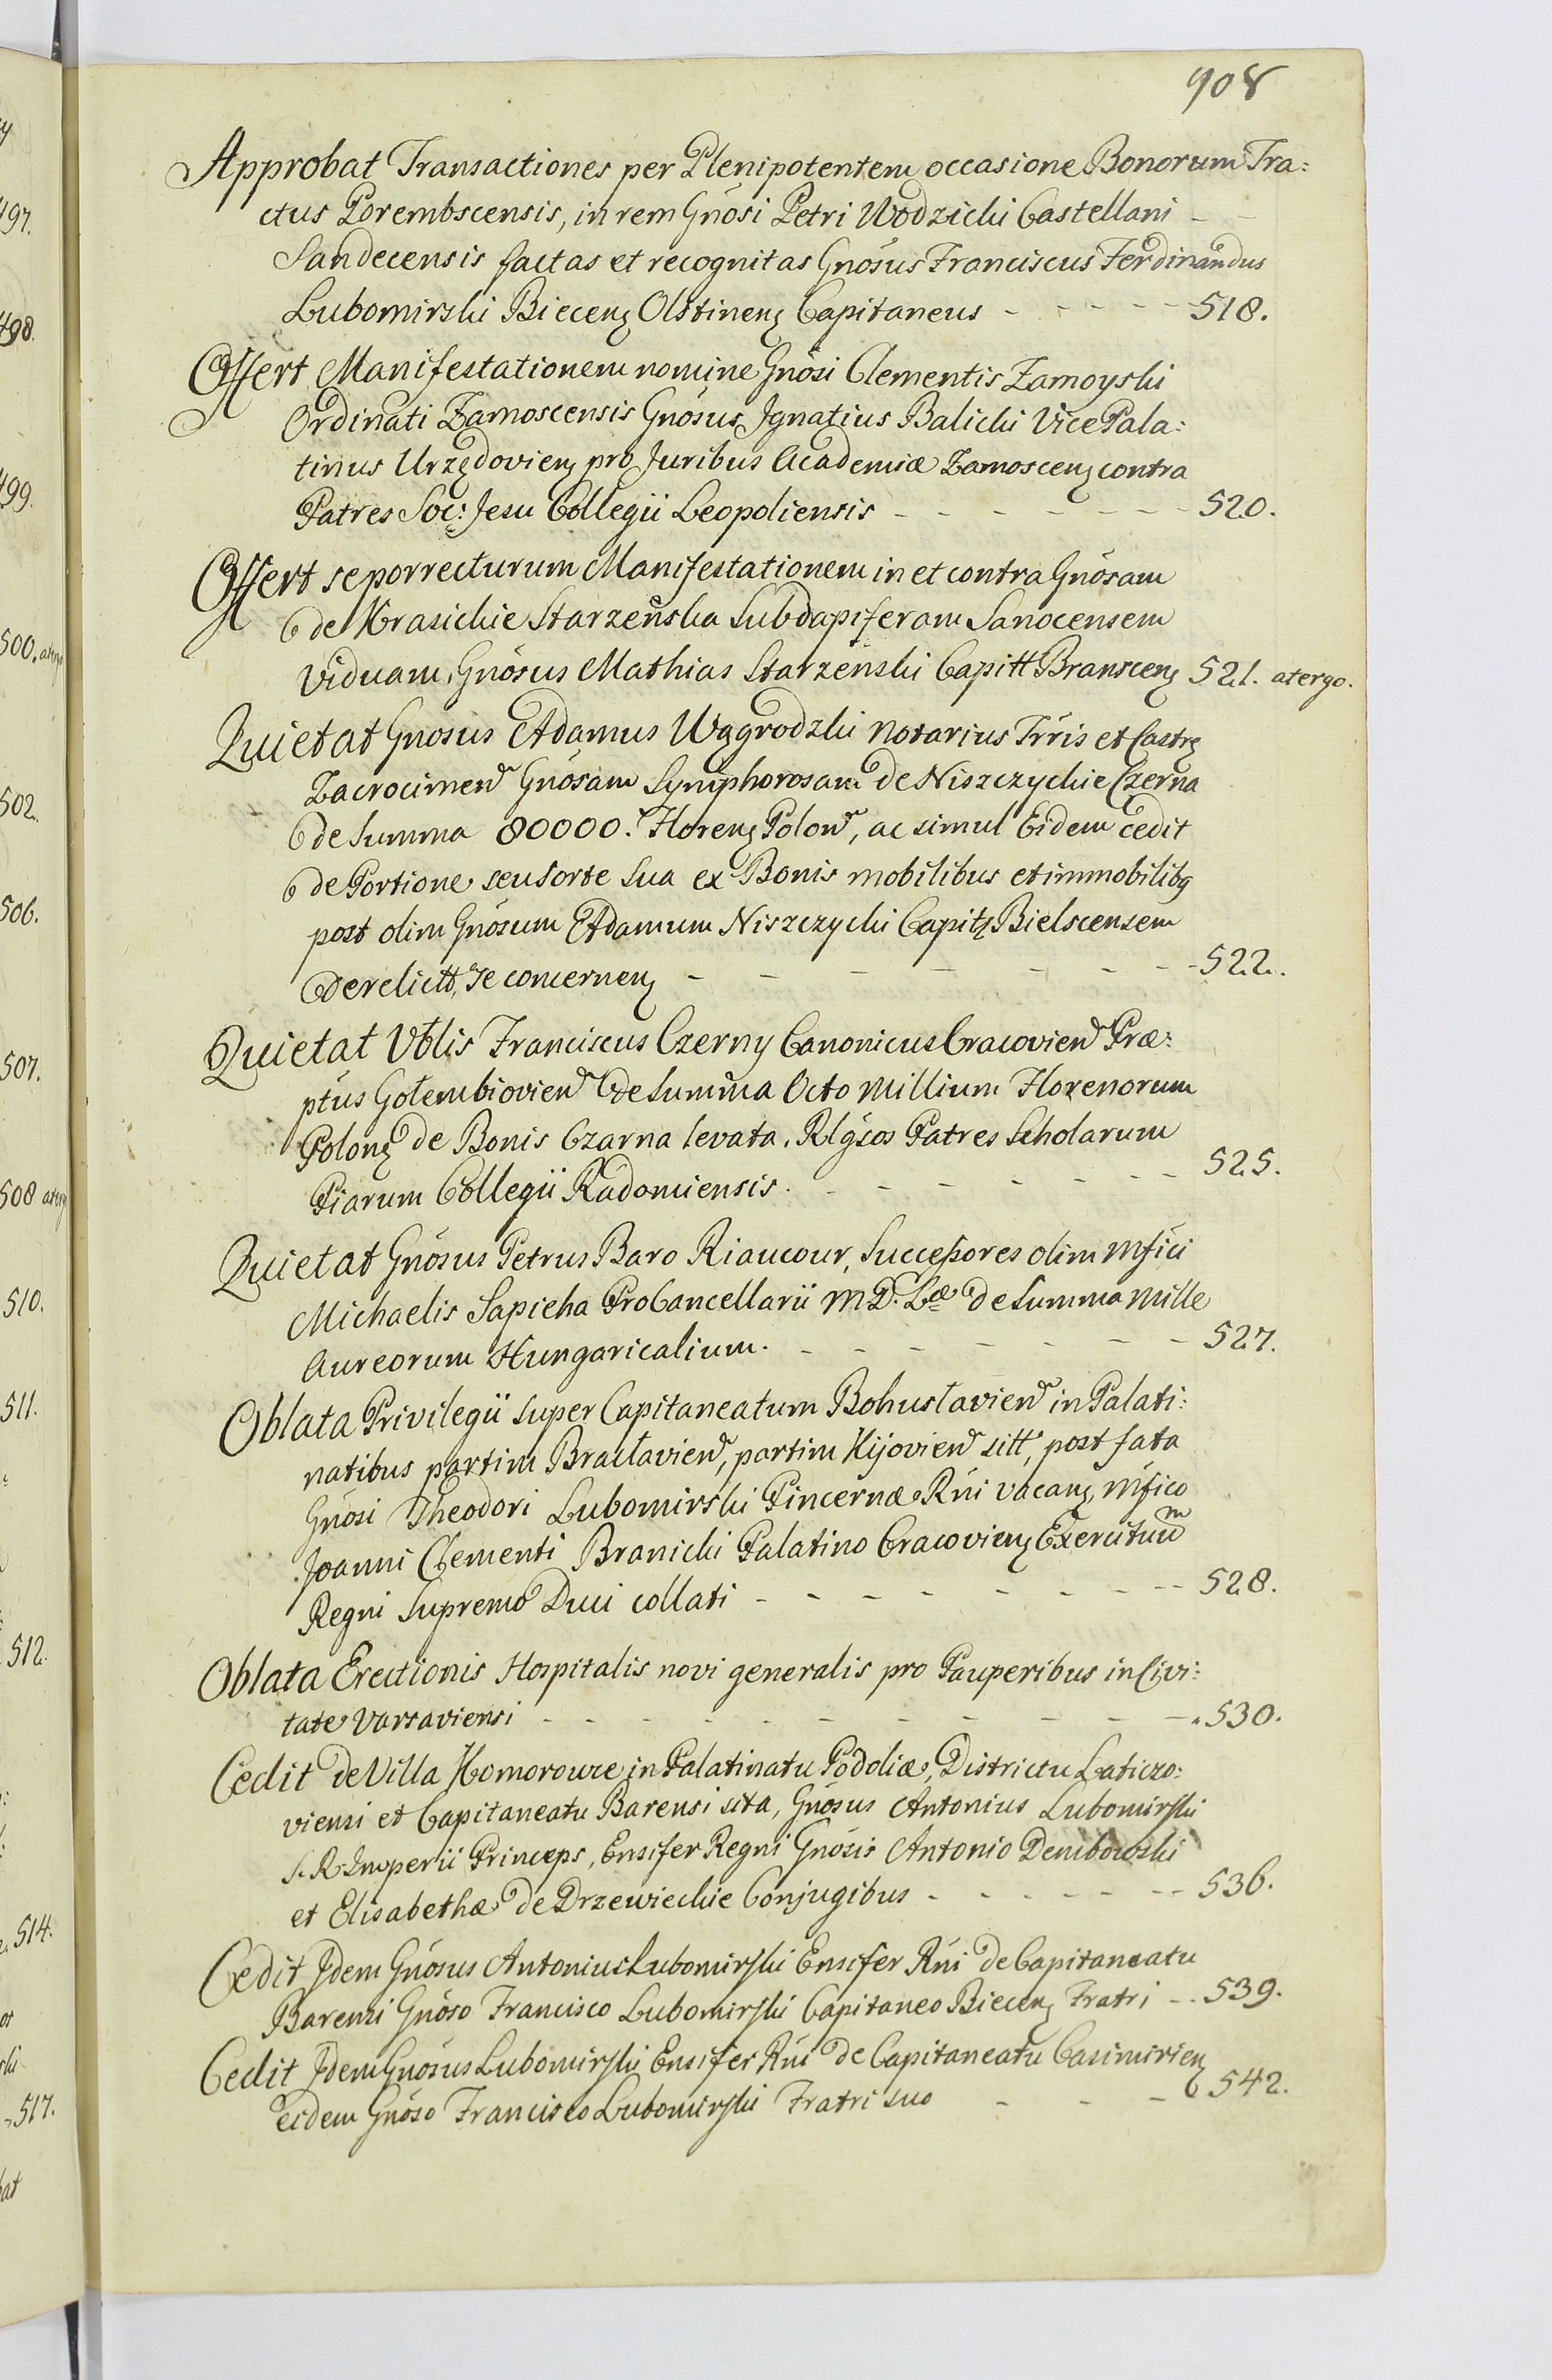 908
Approbat Transactiones per Plenipotentem occasione Bonorum Tra:
ctus Porembscensis, in rem Gnosi Petri Wodzicki Castellani - -
Sandecensis factas et recognitas Gnosus Franciscus Ferdinandus
Lubomirski Biecenȝ Olstinenȝ Capitaneus - - - - - 518.
Offert Manifestationem nomine Gnosi Clementis Zamoyski
Ordinati Zamoscensis Gnosus Ignatius Balicki Vice Pala:
tinus Urzędovienȝ pro Juribus Academiæ Zamoscenȝ contra
Patres Soc: Jesu Collegii Leopoliensis - - - - - - - 520.
Offert se porrecturum Manifestationem in et contra Gnosam
de Krasickie Starzeńska Subdapiferam Sanocensem
Viduam, Gnosus Mathias Starzeński Capitt Branscenȝ 521. atergo.
Quietat Gnosus Adamus Wągrodzki Notarius Trris et Castrȝ
Zacrocimen Gnosam Symphorosam de Niszczyckie Czerna
de Summa 80000. Florenȝ Polon, ac simul Eidem cedit
de Portione seu Sorte sua ex Bonis mobilibus et immobilibȝ
post olim Gnosum Adamum Niszczycki Capitȝ Bielscensem
derelictt, se concernenȝ - - - - - - - 522.
Quietat Vblis Franciscus Czerny Canonicus Cracovien Præ:
ptus Gołembiovien de Summa Octo Millium Florenorum
Polonȝ de Bonis Czarna levata, Rlgsos Patres Scholarum
Piarum Collegii Radomiensis. - - - - - - 525.
Quietat Gnosus Petrus Baro Riaucour, Successores olim Mfici
Michaelis Sapieha ProCancellarii M. D. Læ de Summa Mille
Aureorum Hungaricalium. - - - - - - 527.
Oblata Privilegii super Capitaneatum Bohuslavien in Palati:
natibus partim Braclavien, partim Kijovien sitt, post fata
Gnosi Theodori Lubomirski Pincernæ Rni vacanȝ, Mfico
Joanni Clementi Branicki Palatino Cracovienȝ Exercituum
Regni Supremo Duci collati - - - - - - - 528.
Oblata Erectionis Hospitalis novi generalis pro Pauperibus in Civi:
tate Varsaviensi - - - - - - - - - - 530.
Cedit de Villa Komorowce in Palatinatu Podoliæ, Districtu Laticzo:
viensi et Capitaneatu Barensi sita, Gnosus Antonius Lubomirski
S. R. Imperii Princeps, Ensifer Regni Gnosis Antonio Dembowski
et Elisabethæ de Drzewieckie Conjugibus - - - - - - 536.
Cedit Idem Gnosus Antonius Lubomirski Ensifer Rni de Capitaneatu
Barensi Gnoso Francisco Lubomirski Capitaneo Biecenȝ Fratri - - 539.
Cedit Idem Gnosus Lubomirski Ensifer Rni de Capitaneatu Casimirienȝ
eidem Gnoso Francisco Lubomirski Fratri suo - - - 542.
497.
498.
499.
500. atergo
502.
506.
507.
508 atergo
510.
511.
512.
514.
517.